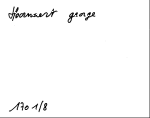 george
170 1/8